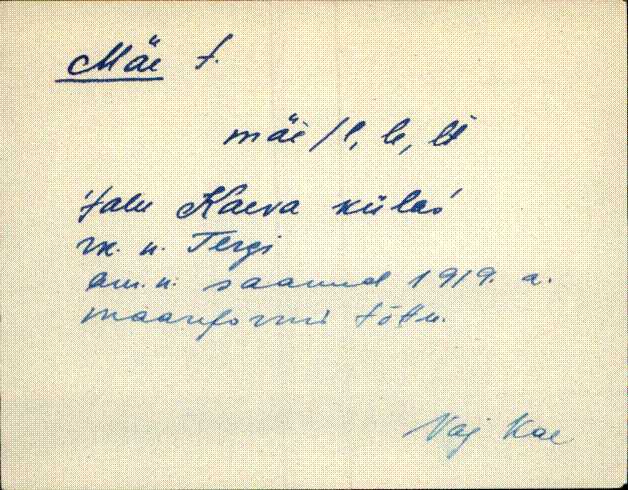 Mäe t.
mäe /l, le, lt
talu Kaeva külas
rk. n. Tergi
am. n. saanud 1919. a.
maareformi tõttu.
Vaj Kae